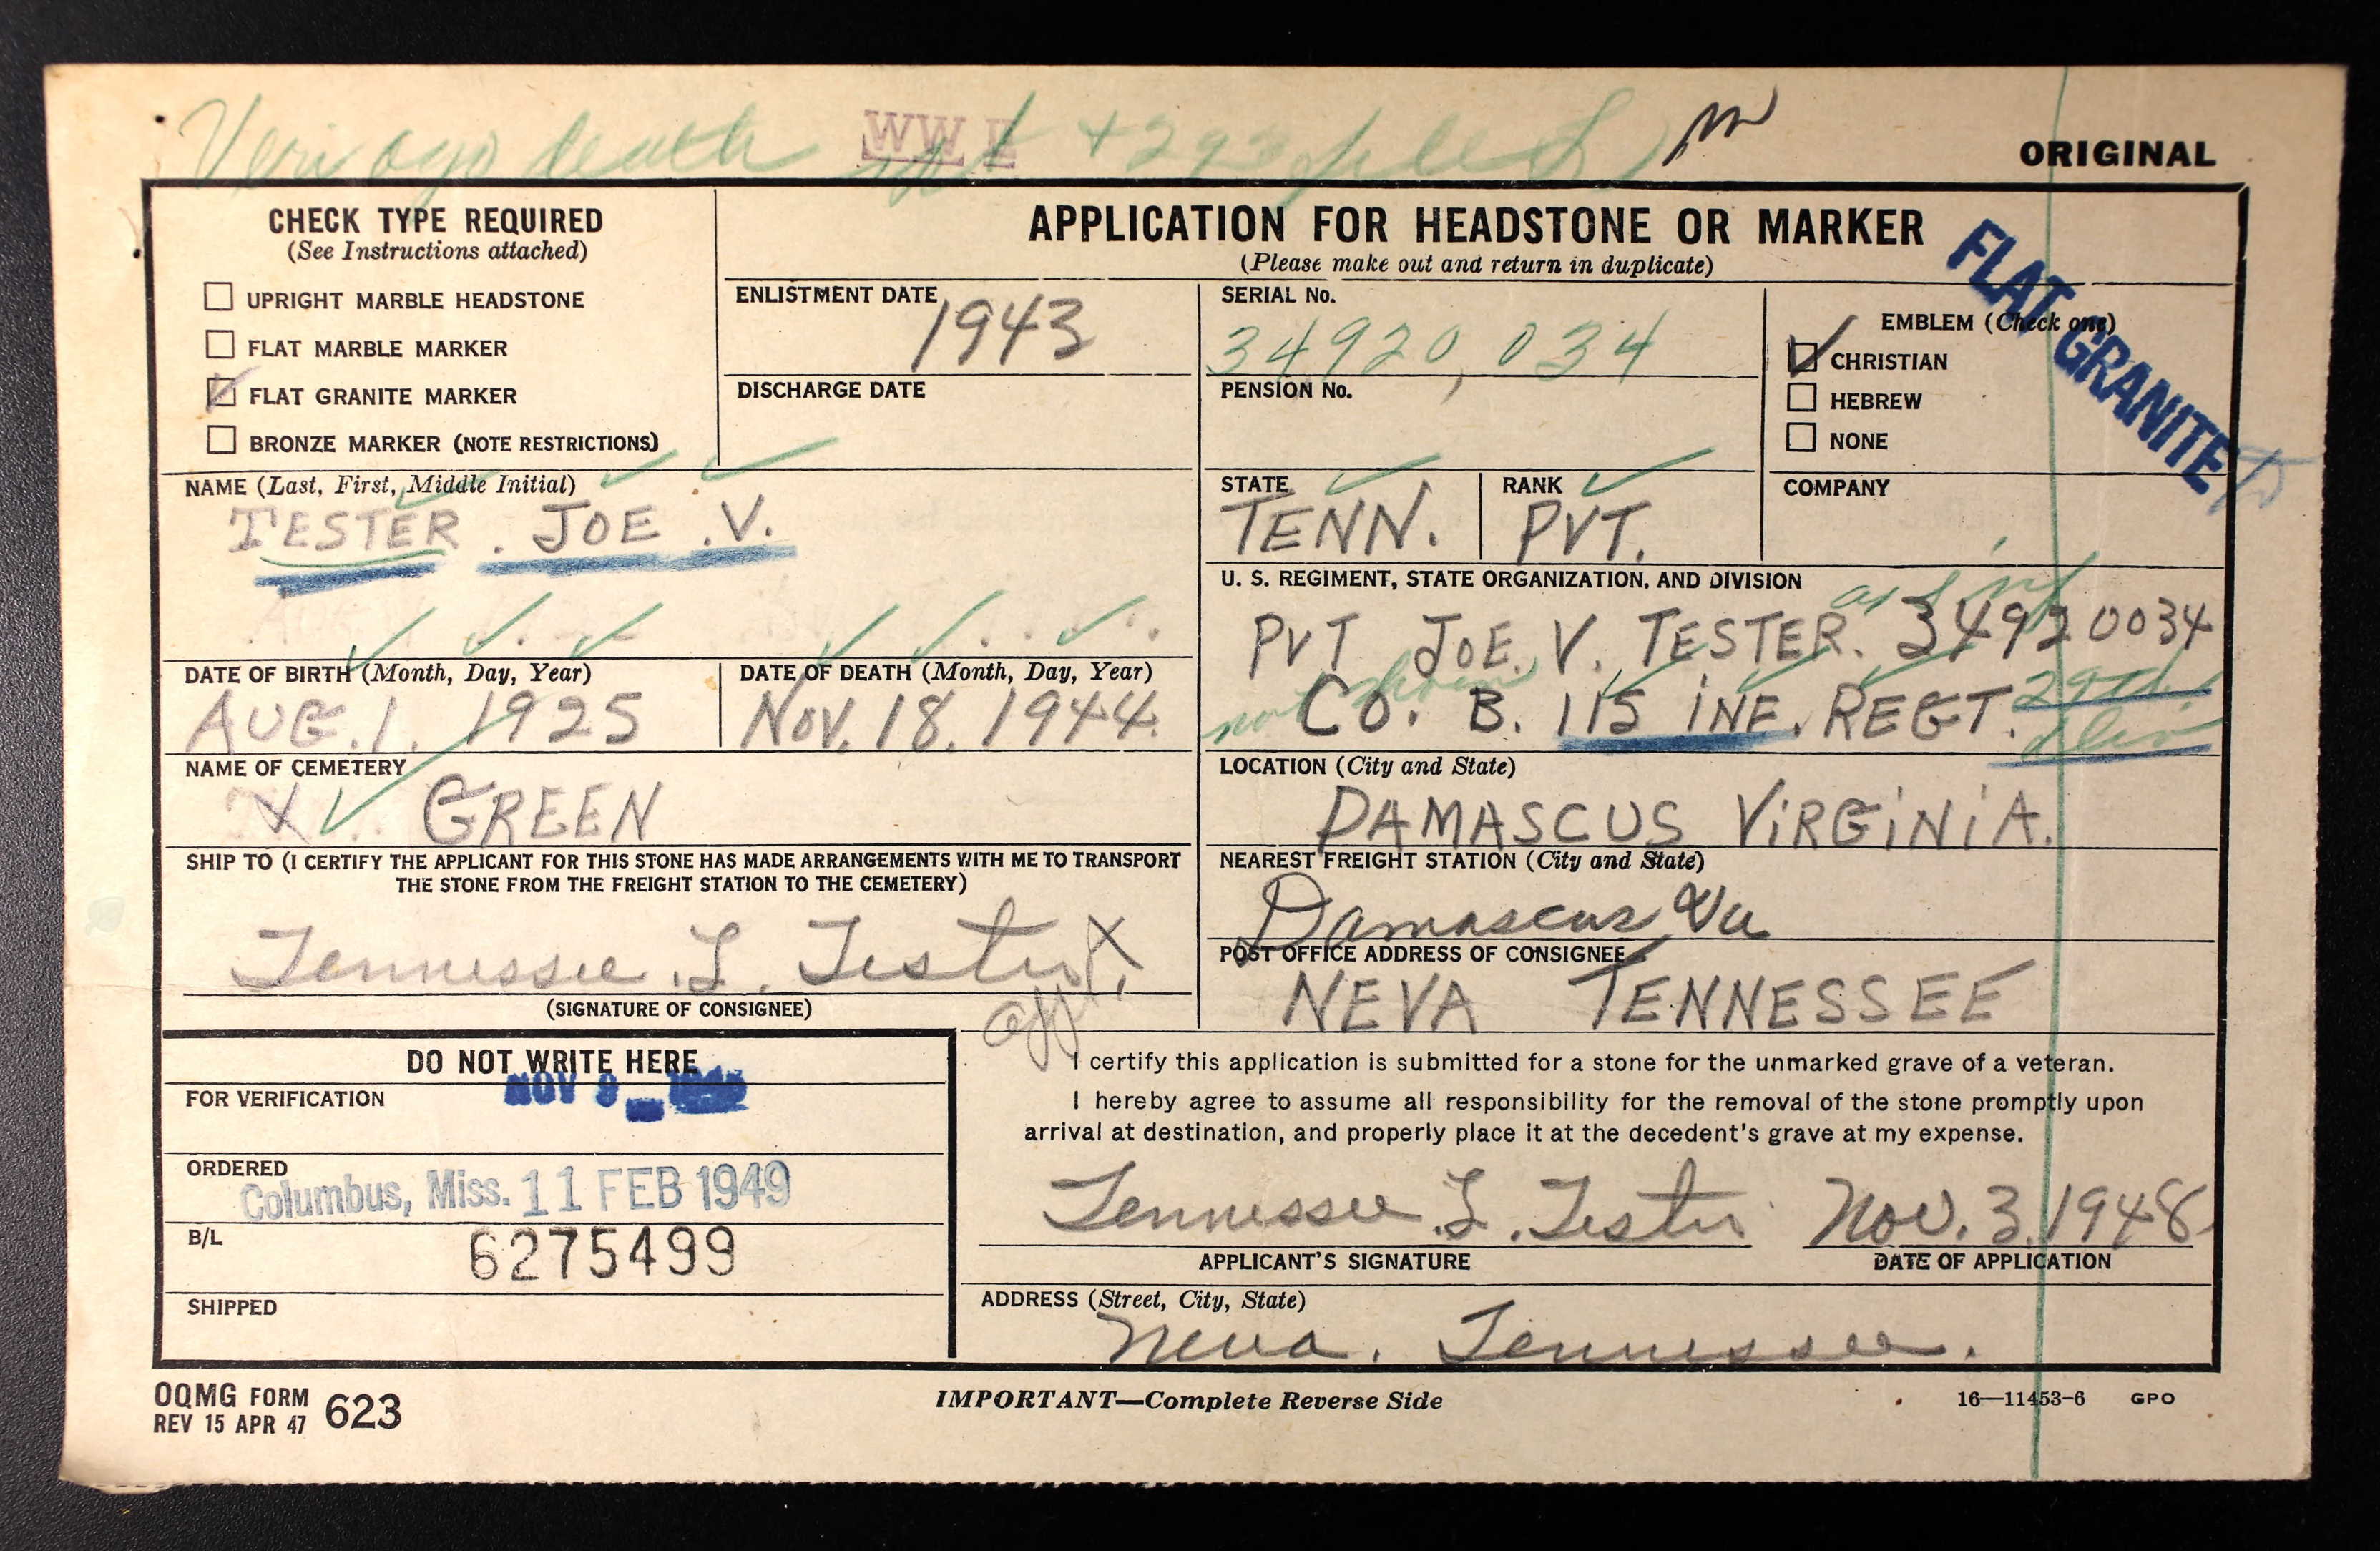 Veri ago death WW II
ORIGINAL
CHECK TYPE REQUIRED
(See Instructions attached)
UPRIGHT MARBLE HEADSTONE
FLAT MARBLE MARKER
FLAT GRANITE MARKER
BRONZE MARKER (NOTE RESTRICTIONS)
APPLICATION FOR HEADSTONE OR MARKER
(Please make out and return in duplicate)
FLAT GRANITE
ENLISTMENT DATE
1943
DISCHARGE DATE
SERIAL No.
34920,034
PENSION No.
EMBLEM (Check one)
CHRISTIAN
HEBREW
NONE
NAME (Last, First, Middle Initial)
TESTER. JOE .V.
STATE
TENN.
RANK
PVT.
COMPANY
U. S. REGIMENT, STATE ORGANIZATION, AND DIVISION
PVT JOE. V. TESTER. 34920034
not shown CO. B. 115 INF. REGT. 29th div
DATE OF BIRTH (Month, Day, Year)
AUG. 1. 1925
DATE OF DEATH (Month, Day, Year)
NOV. 18. 1944.
NAME OF CEMETERY
X GREEN
LOCATION (City and State)
DAMASCUS VIRGINIA.
SHIP TO (I CERTIFY THE APPLICANT FOR THIS STONE HAS MADE ARRANGEMENTS WITH ME TO TRANSPORT
THE STONE FROM THE FREIGHT STATION TO THE CEMETERY)
Tennessee .L. Tester X
appl.
(SIGNATURE OF CONSIGNEE)
NEAREST FREIGHT STATION (City and State)
Damascus Va
POST OFFICE ADDRESS OF CONSIGNEE
NEVA TENNESSEE
DO NOT WRITE HERE
FOR VERIFICATION
NOV 9
ORDERED
Columbus, Miss. 11 FEB 1949
B/L
6275499
SHIPPED
I certify this application is submitted for a stone for the unmarked grave of a veteran.
I hereby agree to assume all responsibility for the removal of the stone promptly upon
arrival at destination, and properly place it at the decedent's grave at my expense.
Tennessee .L. Tester Nov. 3. 1948
APPLICANT'S SIGNATURE
DATE OF APPLICATION
ADDRESS (Street, City, State)
Neva. Tennessee.
OQMG FORM
REV 15 APR 47 623
IMPORTANT—Complete Reverse Side
16—11453-6 GPO